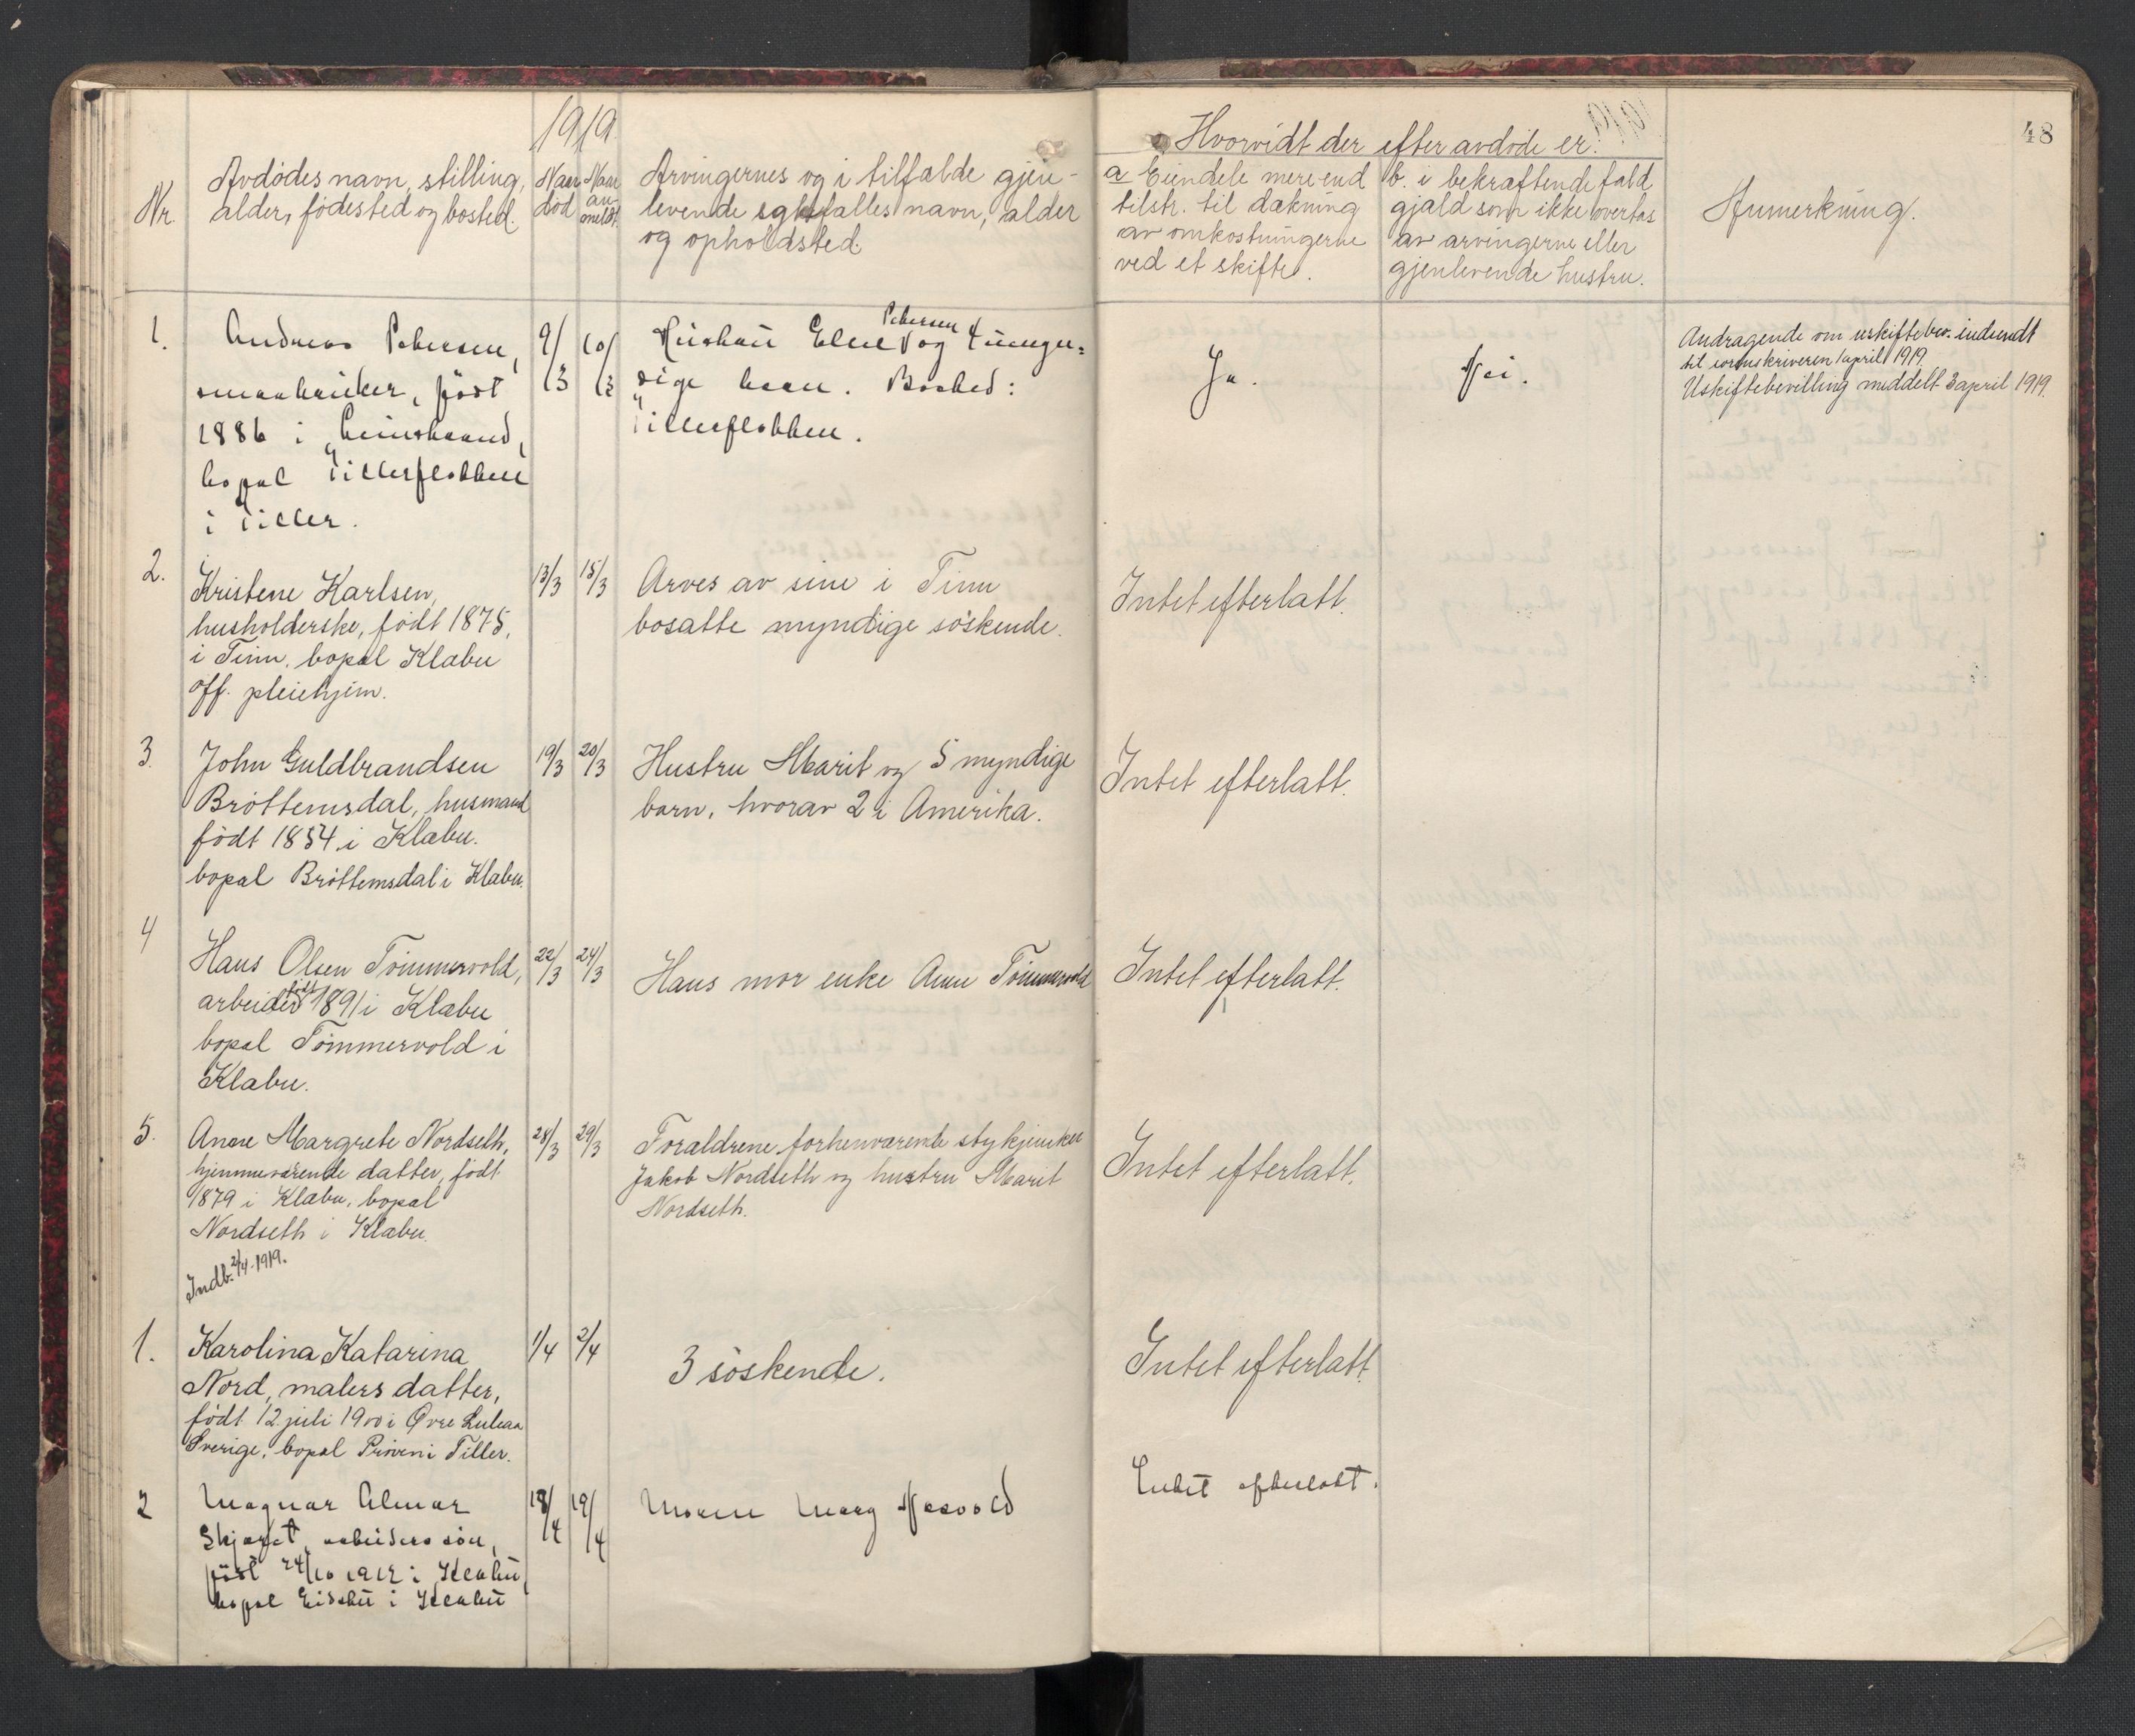 1919
48
Hvorvidt der efter avdöde er:
Nr.
Avdödes navn, stilling,
alder, födested og bosted.
Naar
död
Naar
an-
meldt.
Arvingernes og i tilfælde gjen-
levende egtefælles navn, alder
og opholdsted.
a Eiendele mere end
tilstr. til dækning
av omkostningerne
ved et skifte.
b. i bekræftende fald
gjæld som ikke overtas
av arvingerne eller
gjenlevende hustru.
Anmerkning.
1.
Andreas Petersen,
smaabruker, född
1886 i Leinstrand,
bopæl Tillerflokken
i Tiller.
9/3
10/3
Petersen
og 4 umyn-
dige barn. Bosted:
Tillerflokken.
Ja.
Nei.
Andragende om uskiftebev. indsendt
til sorenskriveren 1 april 1919
Uskiftebevilling meddelt 3 april 1919.
2.
Kristene Karlsen,
husholderske, födt 1875,
i Tinn, bopæl Klæbu
off. pleiehjem.
13/3
15/3
Arves av sine i Tinn
bosatte myndige söskende.
Intet efterlatt.
3.
John Guldbrandsen
Bröttemsdal, husmand
födt 1854 i Klæbu.
bopæl Bröttemsdal i Klæbu.
19/3
20/3
Hustru Marit og 5 myndige
barn, hvorav 2 i Amerika.
Intet efterlatt.
4
Hans Olsen Tömmervold,
arbeider födt 1891 i Klæbu
bopæl Tömmervold i
Klæbu.
22/3
24/3
Hans mor enke Anne Tömmervold
Intet efterlatt.
5.
Anne Margrete Nordseth,
hjemmeværende datter, födt
1879 i Klæbu, bopæl
Nordseth i Klæbu.
28/3
29/3
Forældrene forhenværende
Jakob Nordseth og hustru Marit
Nordseth.
Intet efterlatt.
Indb. 2/4. 1919.
1.
Karolina Katarina
Nord, malers datter,
födt 12 juli 1900 i Øvre Luleaa
Sverige, bopæl i Tiller.
1/4
2/4
3 söskende.
Intet efterlatt
2
Magnar Almar
Skjaret, arbeiders sön,
födt 24/10 1912 i Klæbu,
bopæl i Klæbu
18/4
19/4
Moren
Intet efterlatt.